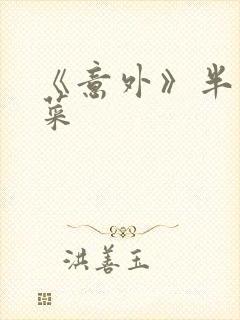 《意外》半
菜
洪善玉